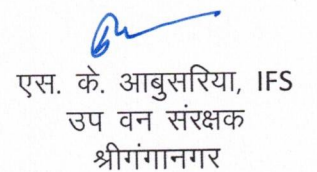 एस. के. आबुसरिया, IFS
उप वन संरक्षक
श्रीगंगानगर